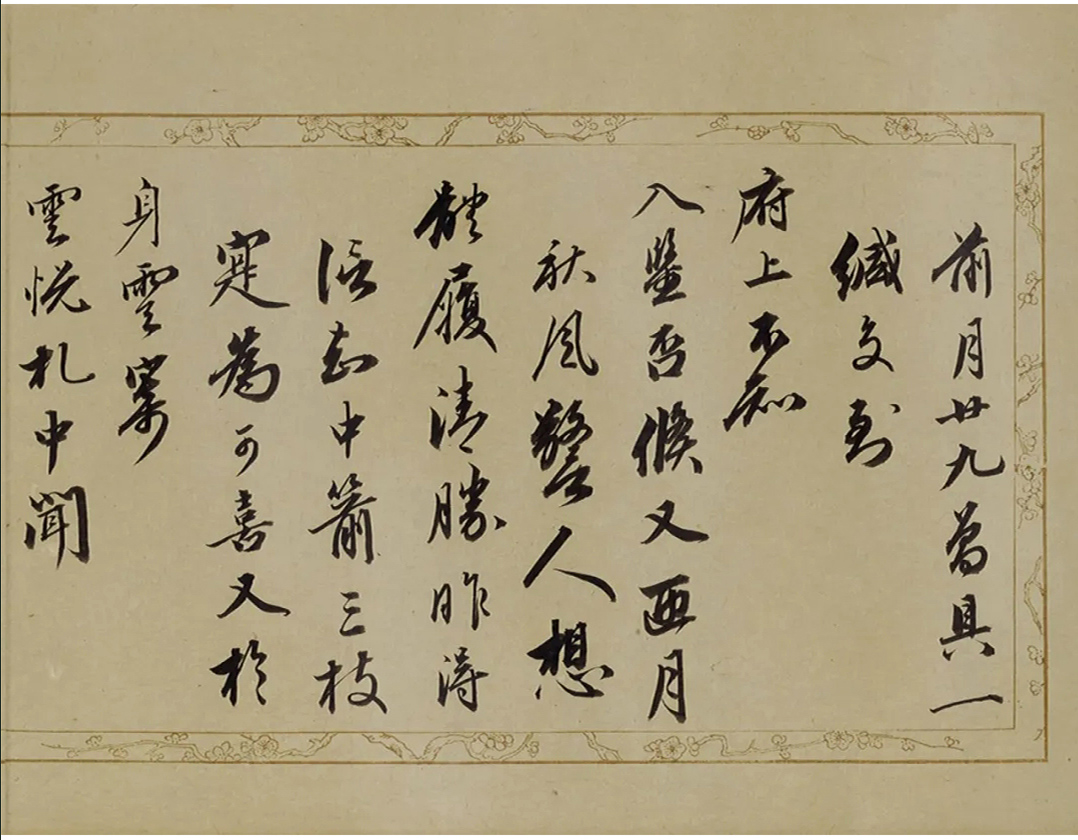 前月廿九曾具一
緘交到
府上不知
入鑒否倏又兩月
秋風警人想
體履清勝昨得
信知中箭三枝
寔為可喜又於
身雲寮
雲悅札中聞